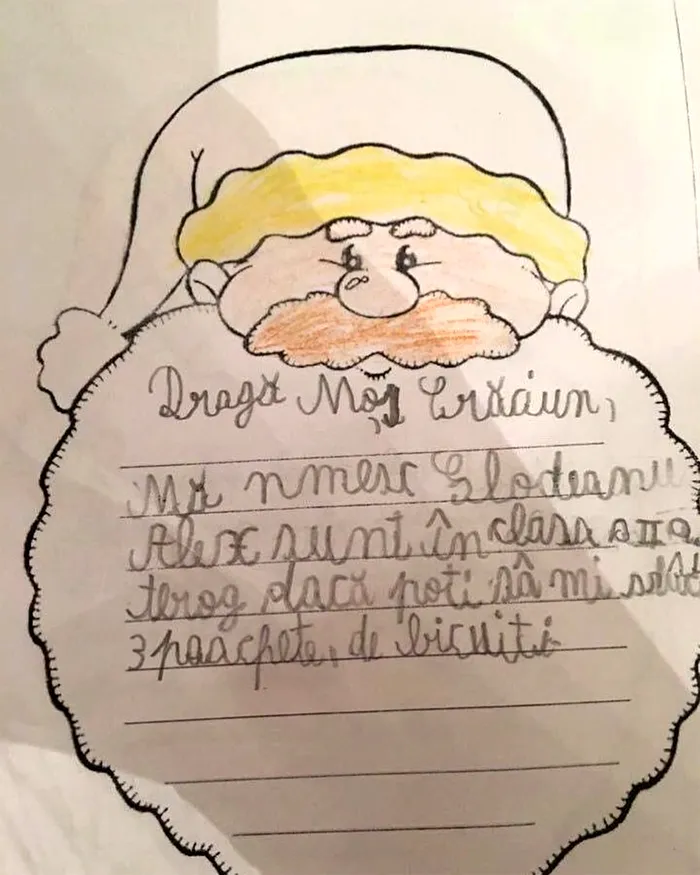 Dragă Moș Crăciun,
Mă nmesc Glodeanu
Alex sunt în clasa a II a.
terog dacă poti să mi
3 paachete, de bicuiti